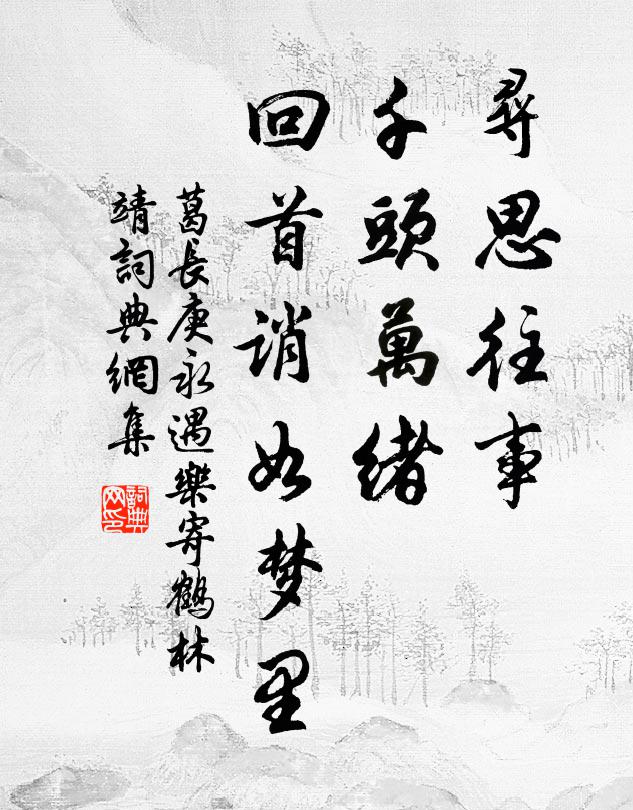 尋思往事
千頭萬緒
回首誚如梦里
葛長庚永遇樂寄鶴林
靖詞典網集
詞典
网印